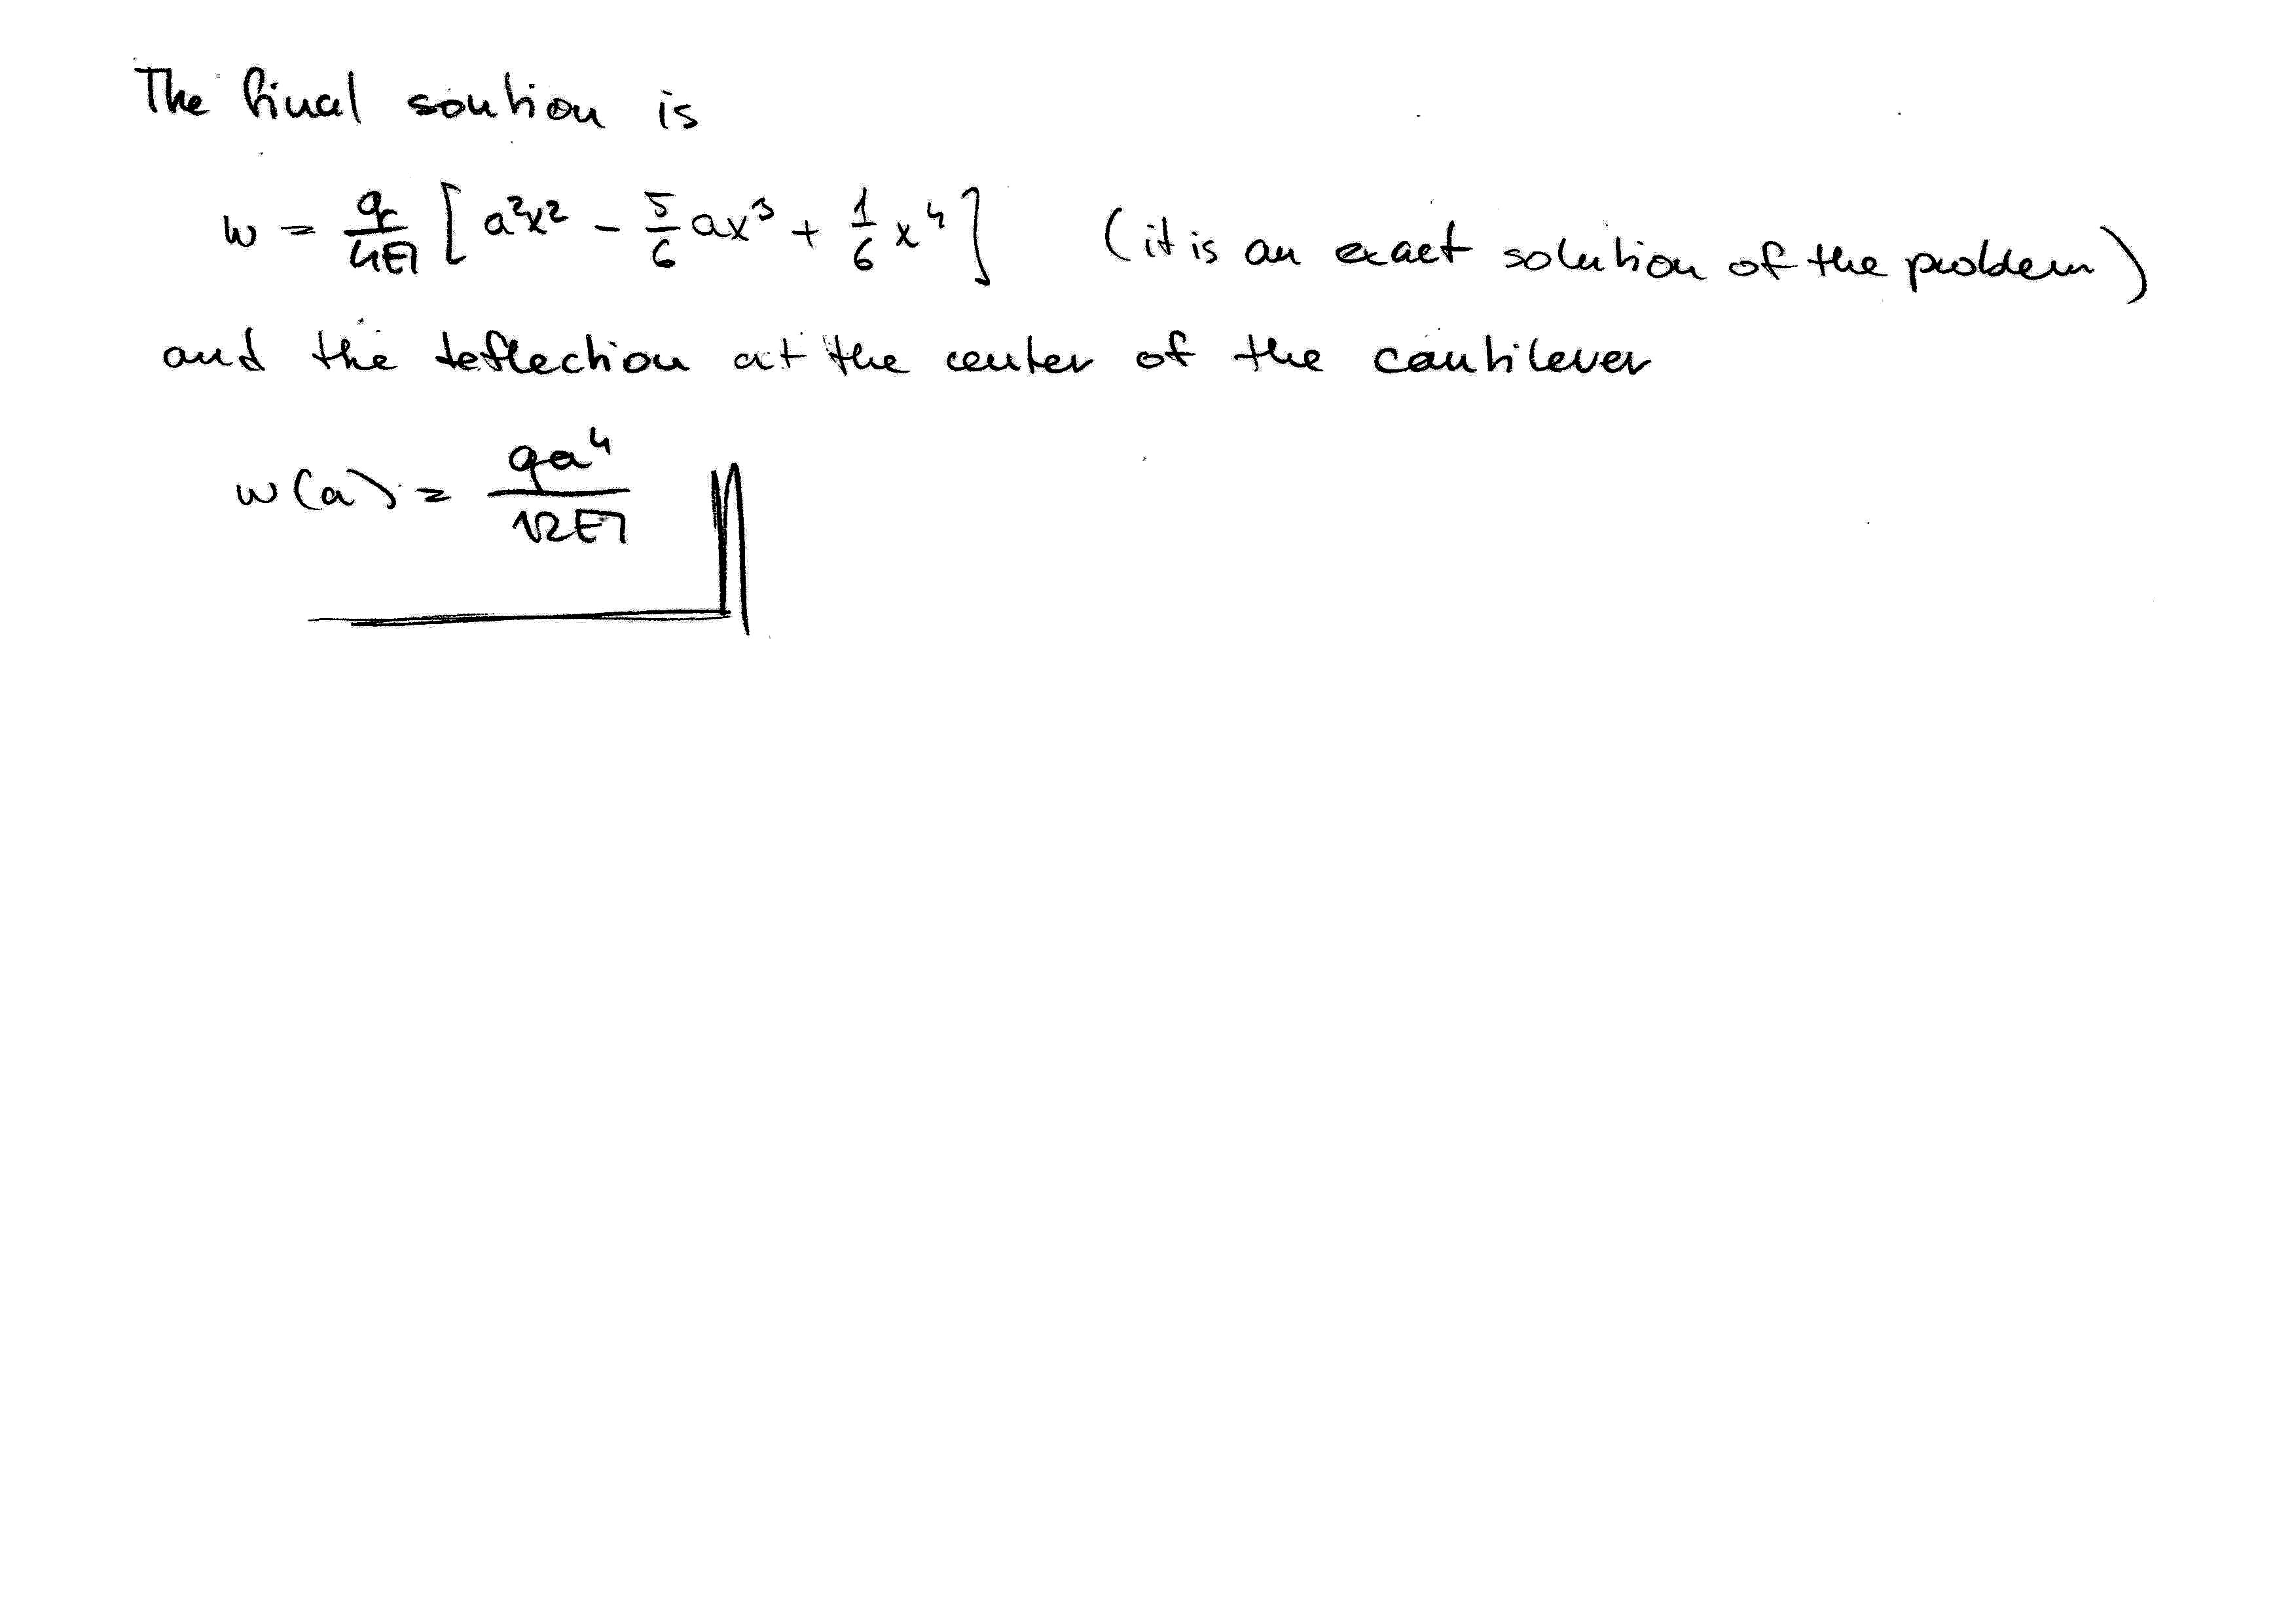 The final soution is
w = q/4EI [ a²x² - 5/6 ax³ + 1/6 x⁴ ] (it is an exact solution of the problem)
and the deflection at the center of the cantilever
w(a) = qa⁴/12EI